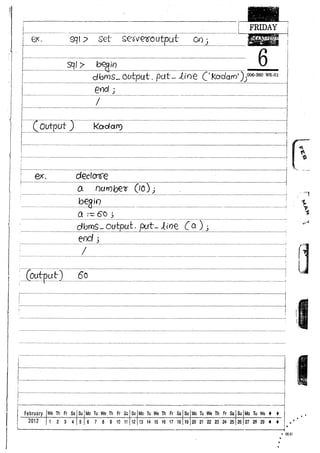 FRIDAY
6
ex. sql> set serveroutput on;
sql> begin
dbms_output.put_line ('Kadam');
end ;
/
(output) Kadam
FEB
ex. declare
a number (10);
begin
MAR
a := 60 ;
dbms_output.put_line (a);
end ;
/
(output) 60
February We Th Fr Sa Su Mo Tu We Th Fr Sa Su Mo Tu We Th Fr Sa Su Mo Tu We Th Fr Sa Su Mo Tu We
2012 1 2 3 4 5 6 7 8 9 10 11 12 13 14 15 16 17 18 19 20 21 22 23 24 25 26 27 28 29